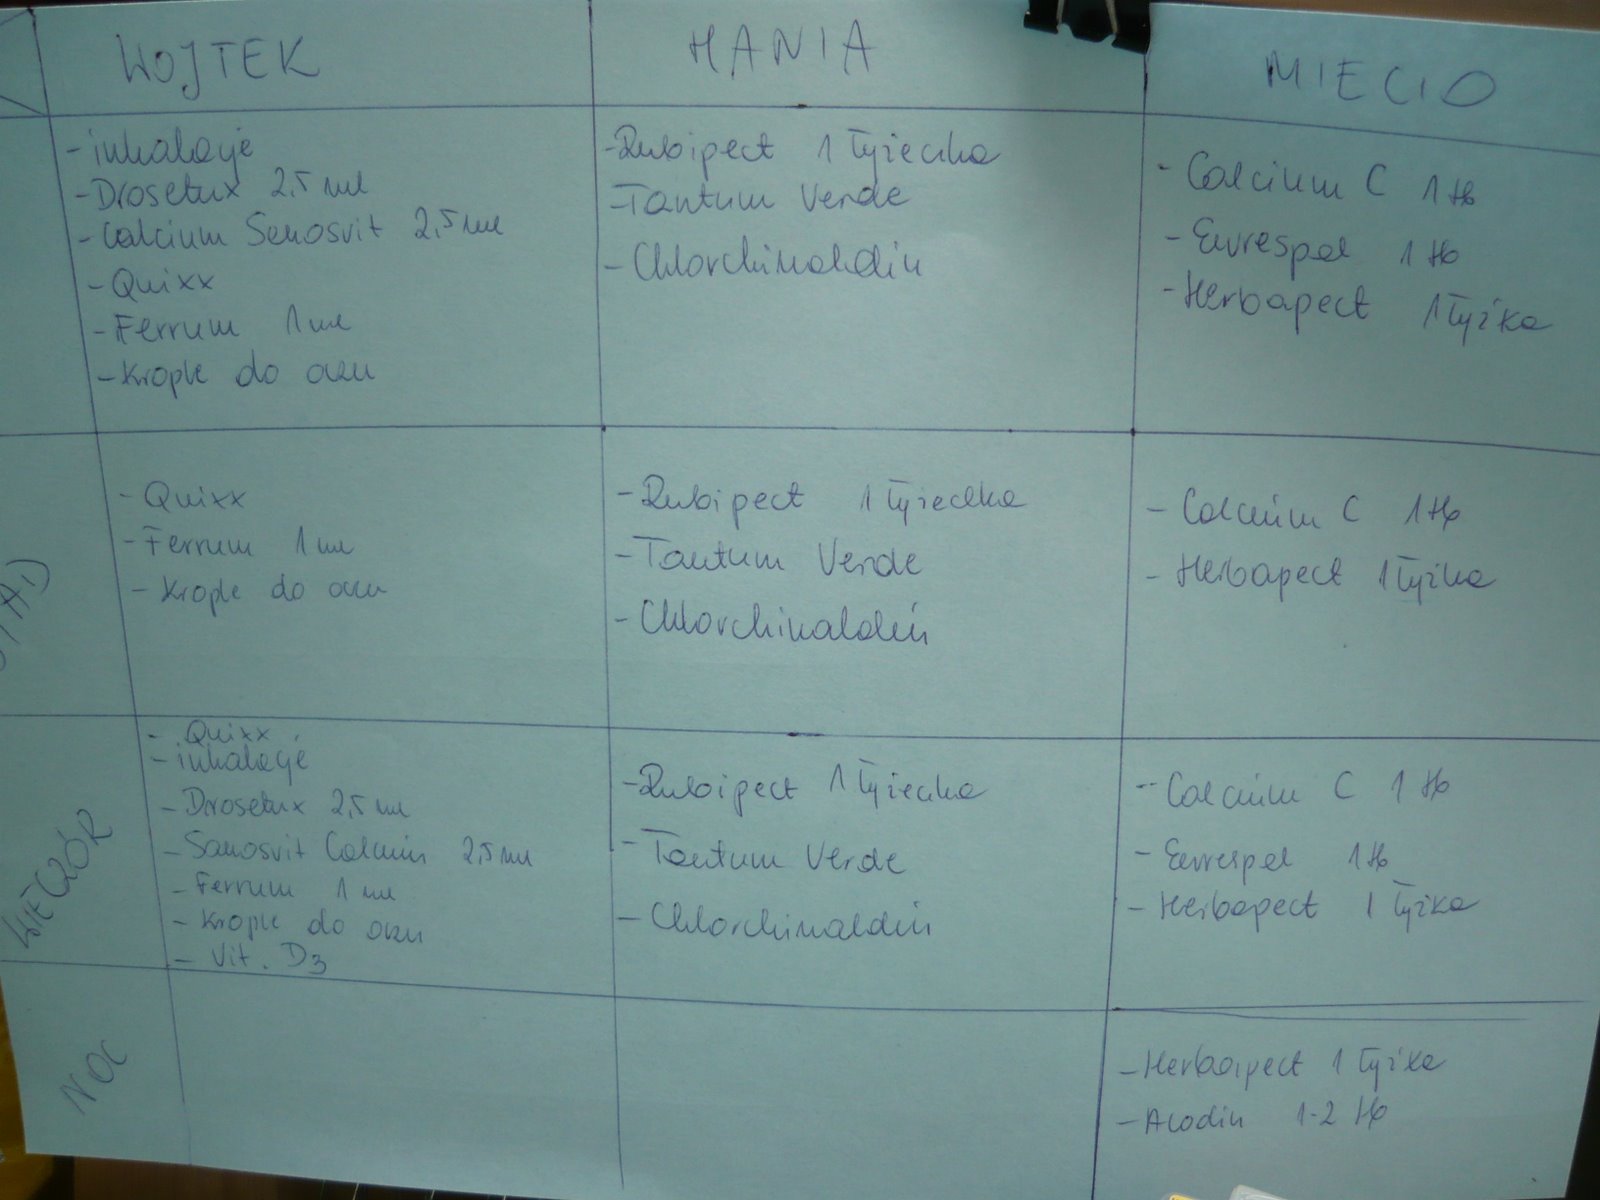 WOJTEK
HANIA
MIECIO
- inhalacje
- Drosetux 2,5 ml
- Calcium Sanosvit 2,5 ml
- Quixx
- Ferrum 1 ml
- Krople do oczu
- Rubipect 1 łyżeczka
- Tantum Verde
- Chlorchinaldin
- Calcium C 1 tb
- Eurespal 1 tb
- Herbapect 1 łyżka
- Quixx
- Ferrum 1 ml
- Krople do oczu
- Rubipect 1 łyżeczka
- Tantum Verde
- Chlorchinaldin
- Calcium C 1 tb
- Herbapect 1 łyżka
WIECZÓR
- Quixx
- inhalacje
- Drosetux 2,5 ml
- Sanosvit Calcium 2,5 ml
- Ferrum 1 ml
- Krople do oczu
- Vit. D3
- Rubipect 1 łyżeczka
- Tantum Verde
- Chlorchinaldin
- Calcium C 1 tb
- Eurespal 1 tb
- Herbapect 1 łyżka
NOC
- Herbapect 1 łyżka
- Acodin 1-2 tb